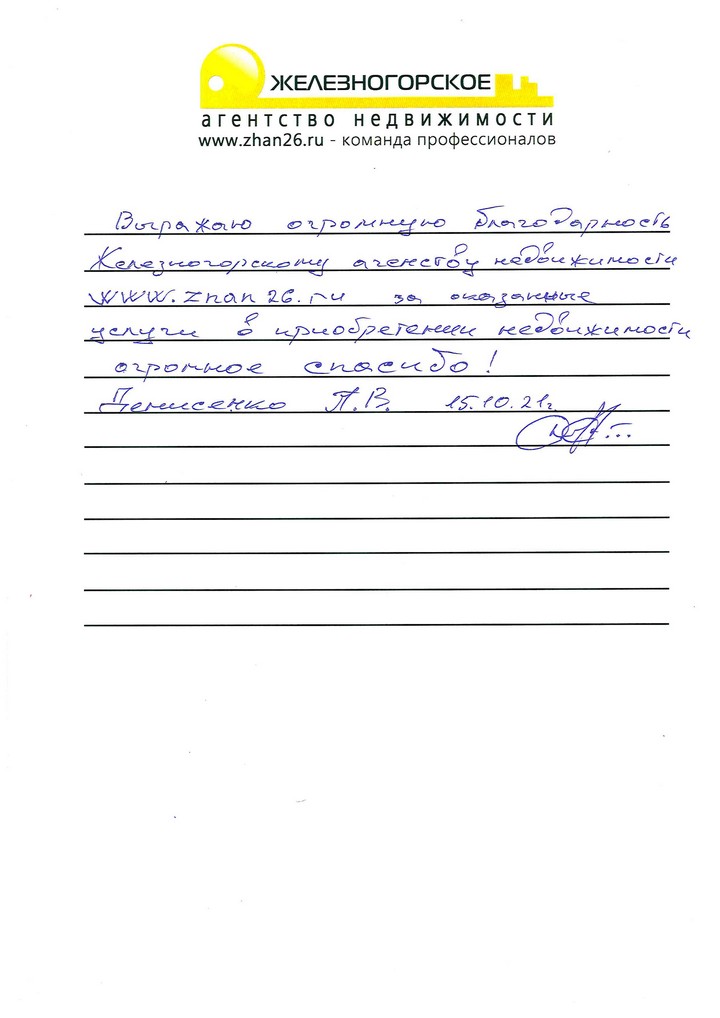 ЖЕЛЕЗНОГОРСКОЕ
агентство недвижимости
www.zhan26.ru - команда профессионалов
Выражаю огромную благодарность
Железногорскому агенству недвижимости
www.zhan26.ru за оказанные
услуги в приобретении недвижимости
огромное спасибо!
Денисенко П.В. 15.10.21г.